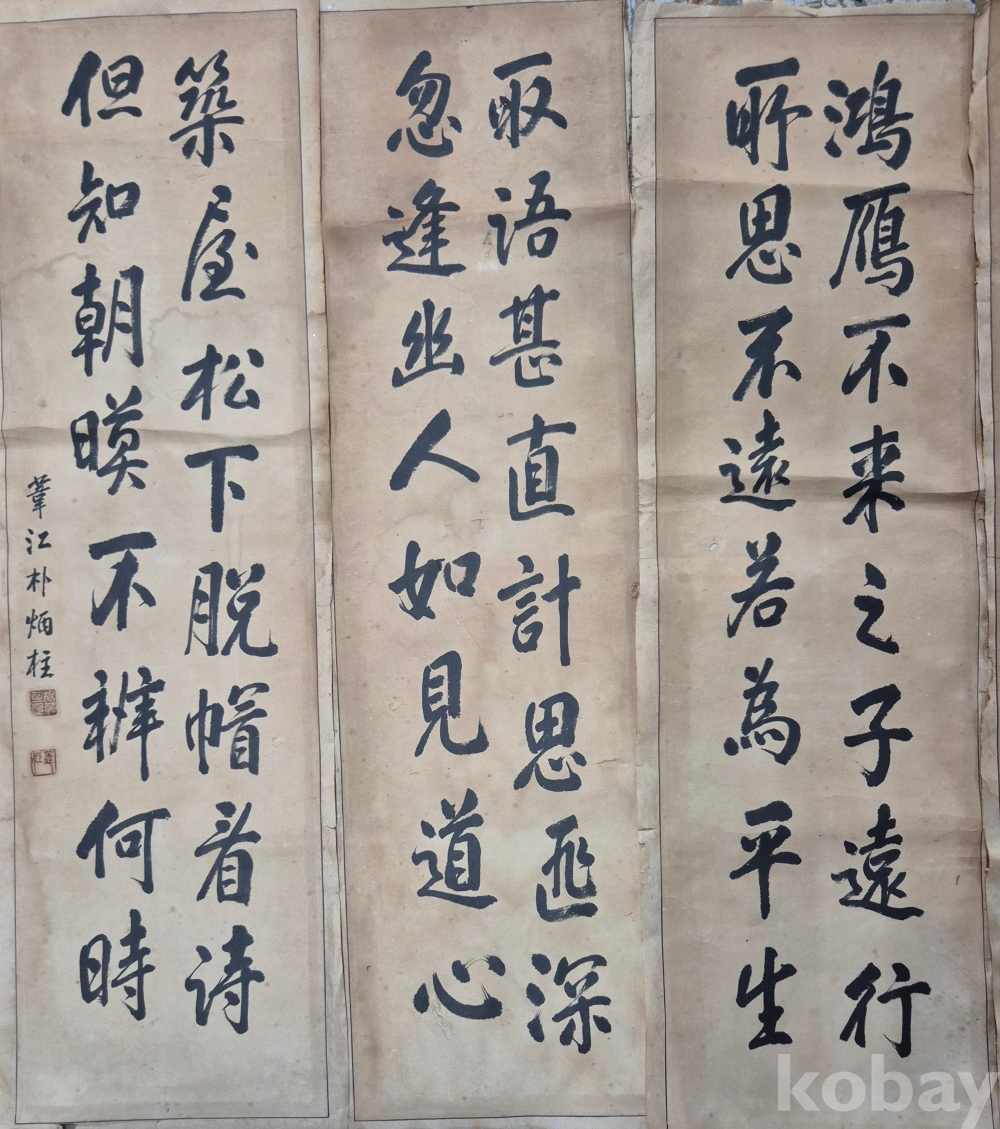 鴻鴈不来之子遠行
所思不遠若為平生
取語甚直計思匪深
忽逢幽人如見道心
築屋松下脱帽看诗
但知朝暯不辨何時
肇江朴炳柱
kobay